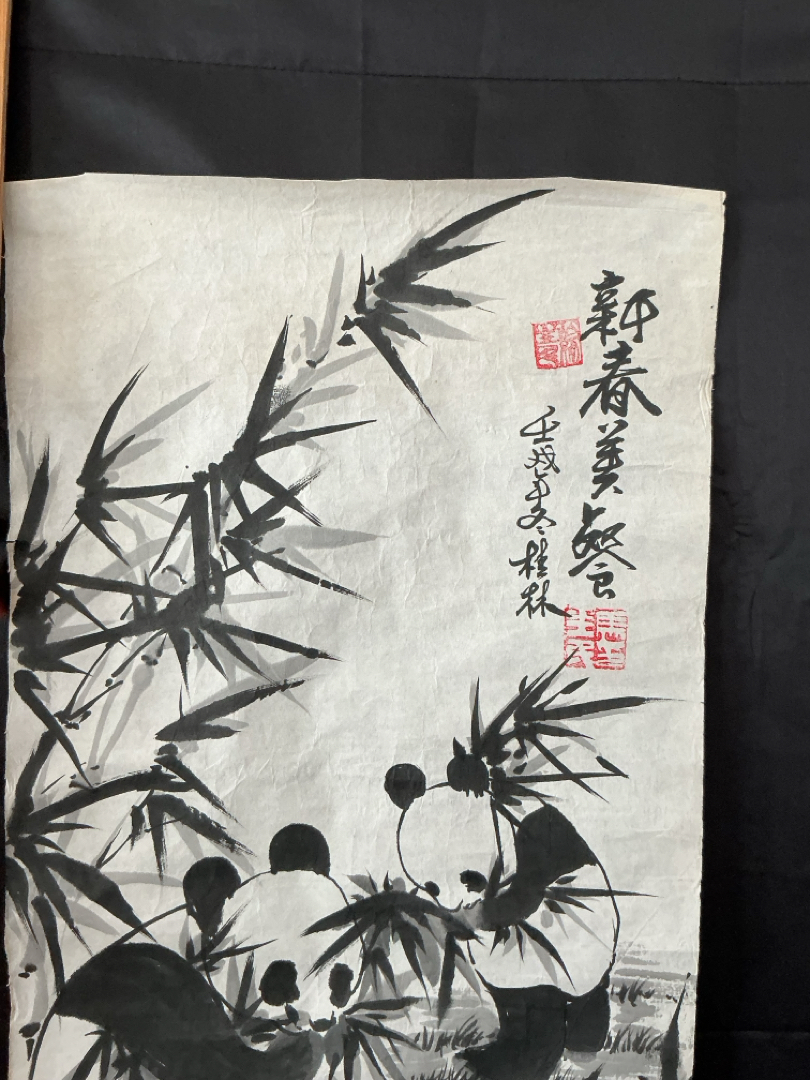 新春美餐
壬戌年冬桂林